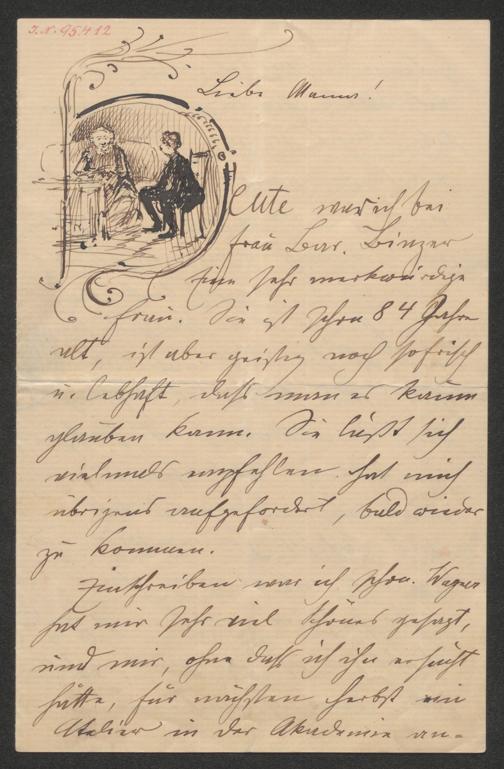 J.N. 95.412
Liebe Mama!
Heute war ich bei
Frau Bar. Binzer
Eine sehr merkwürdige
Frau. Sie ist schon 84 Jahre
alt, ist aber geistig noch so frisch
u. lebhaft, dass man es kaum
glauben kann. Sie läßt sich
vielmals empfehlen hat mich
übrigens aufgefordert, bald wieder
zu kommen.
Einschreiben war ich schon. Wagner
hat mir sehr viel Schönes gesagt,
und mir, ohne daß ich ihn ersucht
hätte, für nächsten Herbst ein
Atelier in der Akademie an-